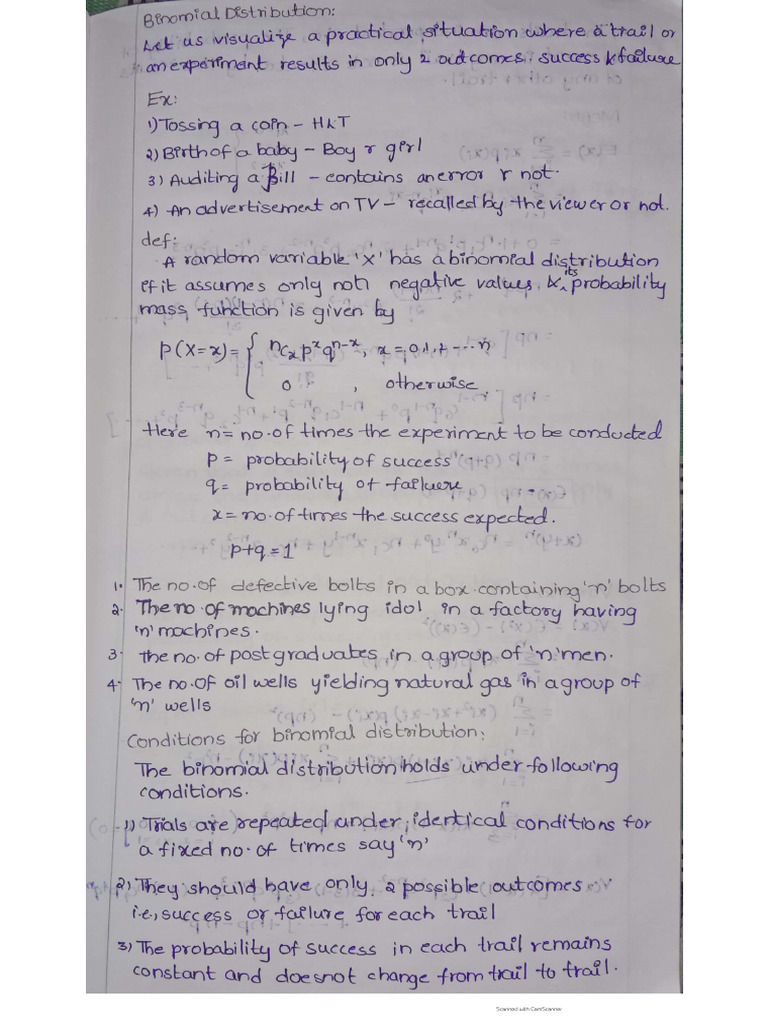 Binomial Distribution:
Let us visualize a practical situation where a trail or
an experiment results in only 2 outcomes. success & failure
Ex:
1) Tossing a coin - H & T
2) Birth of a baby - Boy r girl
3) Auditing a Bill - contains an error r not.
4) An advertisement on TV - recalled by the viewer or not.
def:
A random variable 'X' has a binomial distribution
if it assumes only non negative values & its probability
mass function is given by
P(X=x) = { nCx p^x q^n-x, x=0,1,2 ---- n
0 , otherwise
Here n = no. of times the experiment to be conducted
P = probability of success
q = probability of failuere
x = no. of times the success expected.
p+q=1
1. The no. of defective bolts in a box containing 'n' bolts
2. The no. of machines lying idol in a factory having
'n' machines.
3. The no. of post graduates in a group of 'n' men.
4. The no. of oil wells yielding natural gas in a group of
'n' wells
Conditions for binomial distribution:
The binomial distribution holds under following
conditions.
1) Trials are repeated under identical conditions for
a fixed no. of times say 'n'
2) They should have only 2 possible outcomes
i.e., success or failure for each trail
3) The probability of success in each trail remains
constant and doesnot change from trail to trail.
Scanned with CamScanner